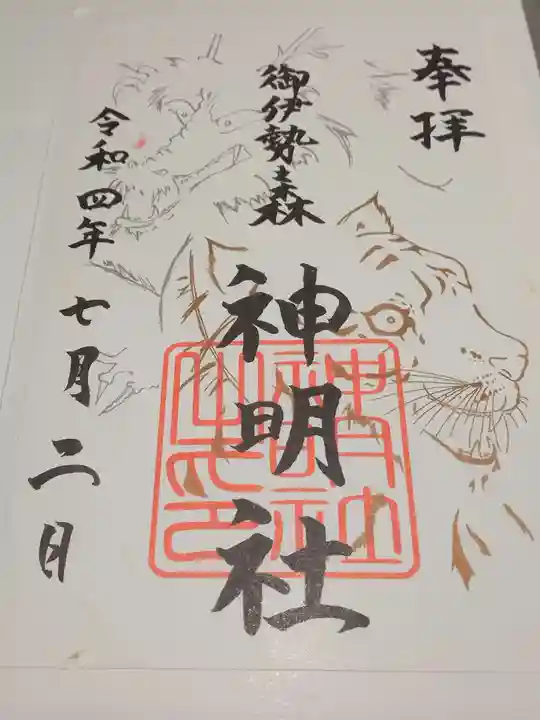 奉拝
御伊勢森
神明社
神明社之印
令和四年七月二日